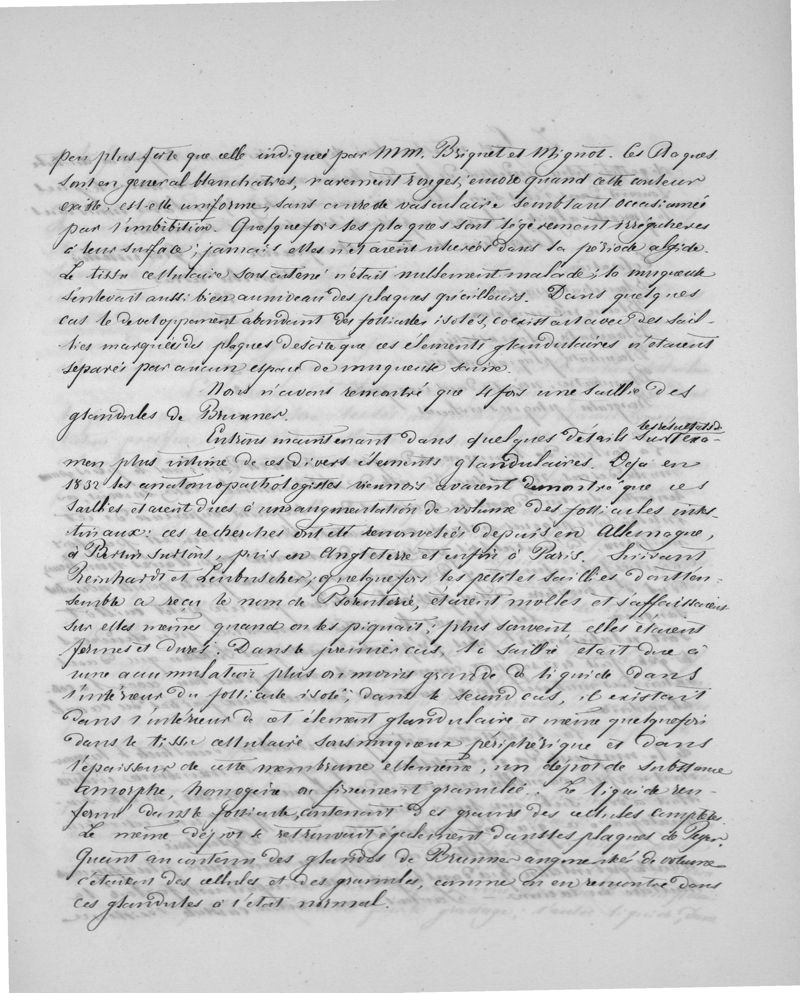 peu plus forte que celle indiquée par MM. Briquet et Mignot. Ces Plaques
sont en general blanchatres, rarement rouges; encore quand cette couleur
existe, est-elle uniforme, sans vasculaire semblant occasionnée
par l'imbibition. Quelquefois les plaques sont légèrement irrégulieres
à leur surface; jamais elles n'étaient ulcerées dans la période algide.
Le tissu cellulaire sous cutané n'était nullement malade; la muqueuse
s'enlevait aussi bien au niveau des plaques qu'ailleurs. Dans quelques
cas le developpement abondant des follicules isolés, coexistait avec des sail-
lies marquées des plaques desorte que ces éléments glandulaires n'étaient
separés par aucun espace de muqueuse saine.
Nous n'avons rencontré que 4 fois une saillie des
glandules de Brunner.
Entrons maintenant dans quelques détails sur les résultats de l'exa-
men plus intime de ces divers éléments glandulaires. Dejà en
1832 les anatomopathologistes viennois avaient demontré que ces
saillies étaient dues à une augmentation de volume des follicules intes-
tinaux: ces recherches ont été renouvelées depuis en Allemagne,
à Berlin surtout, puis en Angleterre et enfin à Paris. Suivant
Reinhardt et Leubuscher, quelquefois les petites saillies dont l'en-
semble a reçu le nom de Psorenterie, étaient molles et s'affaissaient
sur elles mêmes quand on les piquait; plus souvent elles étaient
fermes et dures. Dans le premier cas, la saillie était due à
une accumulation plus ou moins grande de liquide dans
l'intérieur du follicule isolé; dans le second cas, il existait
dans l'intérieur de cet élément glandulaire et même quelquefois
dans le tissu cellulaire sousmuqueux périphérique et dans
l'épaisseur de cette membrane elle même, un dépôt de substance
amorphe, homogène ou finement granulée. Le liquide ren-
fermé dans le follicule, contenant des grains des cellules completes.
Le même dépôt se retrouvait également dans les plaques de Peyer.
Quant au contenu des glandes de Brunner augmentées de volume
c'étaient des cellules et des granules, comme on en rencontre dans
ces glandules à l'état normal.